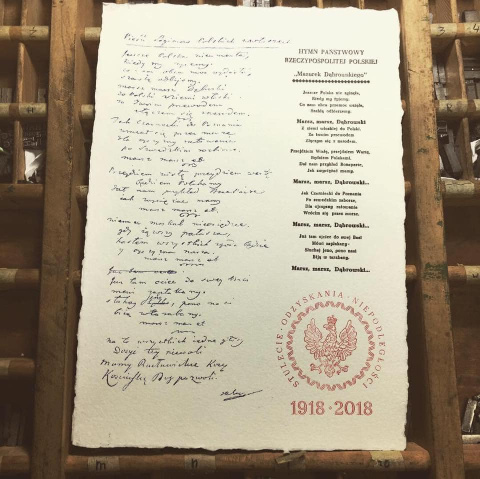 Pieśń Legionów Polskich
Jeszcze Polska nie umarła,
kiedy my żyjemy
co nam obca moc wydarła,
szablą odbijemy
marsz marsz Dąbrowski
do Polski z ziemi włoski
za Twoim przewodem
złączem się z narodem
Jak Czarniecki do Poznania
wracał się przez morze
dla ojczyzny ratowania
po szwedzkim rozbiorze
marsz marsz et
Przejdziem Wisłę przejdziem Wartę
będziem Polakami
dał nam przykład Bonaparte
jak zwyciężać mamy
marsz marsz et
niemiec moskal nie osiędzie,
gdy jąwszy pałasza,
hasłem wszystkich zgoda będzie
y ojczyzna nasza
marsz marsz et
Już tam ociec do swej Basi
mówi zapłakany
słuchaj, pono nasi
biją w tarabany
marsz marsz et
na to wszystkich jedne głosy
Dosyć tey niewoli
mamy Racławickie Kosy
Kościuszkę Bóg pozwoli.
HYMN PAŃSTWOWY
RZECZYPOSPOLITEJ POLSKIEJ
„Mazurek Dąbrowskiego”
Jeszcze Polska nie zginęła,
Kiedy my żyjemy.
Co nam obca przemoc wzięła,
Szablą odbierzemy.
Marsz, marsz, Dąbrowski
Z ziemi włoskiej do Polski.
Za twoim przewodem
Złączym się z narodem.
Przejdziem Wisłę, przejdziem Wartę,
Będziem Polakami.
Dał nam przykład Bonaparte,
Jak zwyciężać mamy.
Marsz, marsz, Dąbrowski...
Jak Czarniecki do Poznania
Po szwedzkim zaborze,
Dla ojczyzny ratowania
Wrócim się przez morze.
Marsz, marsz, Dąbrowski...
Już tam ojciec do swej Basi
Mówi zapłakany:
Słuchaj jeno, pono nasi
Biją w tarabany.
Marsz, marsz, Dąbrowski...
STULECIE · ODZYSKANIA · NIEPODLEGŁOŚCI
1918 · 2018